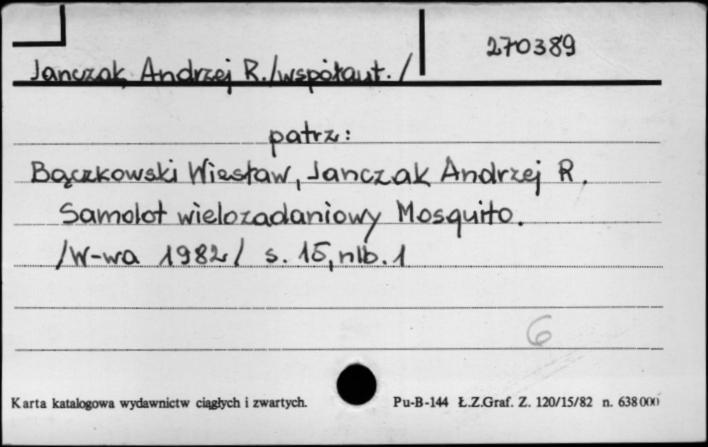 270389
Janczak, Andrzej R. /współaut./
patrz:
Bączkowski Wiesław, Janczak Andrzej R.
Samolot wielozadaniowy Mosquito.
/W-wa 1982/ s. 15, nlb. 1
6
Karta katalogowa wydawnictw ciągłych i zwartych. Pu-B-144 Ł.Z.Graf. Z. 120/15/82 n. 638000